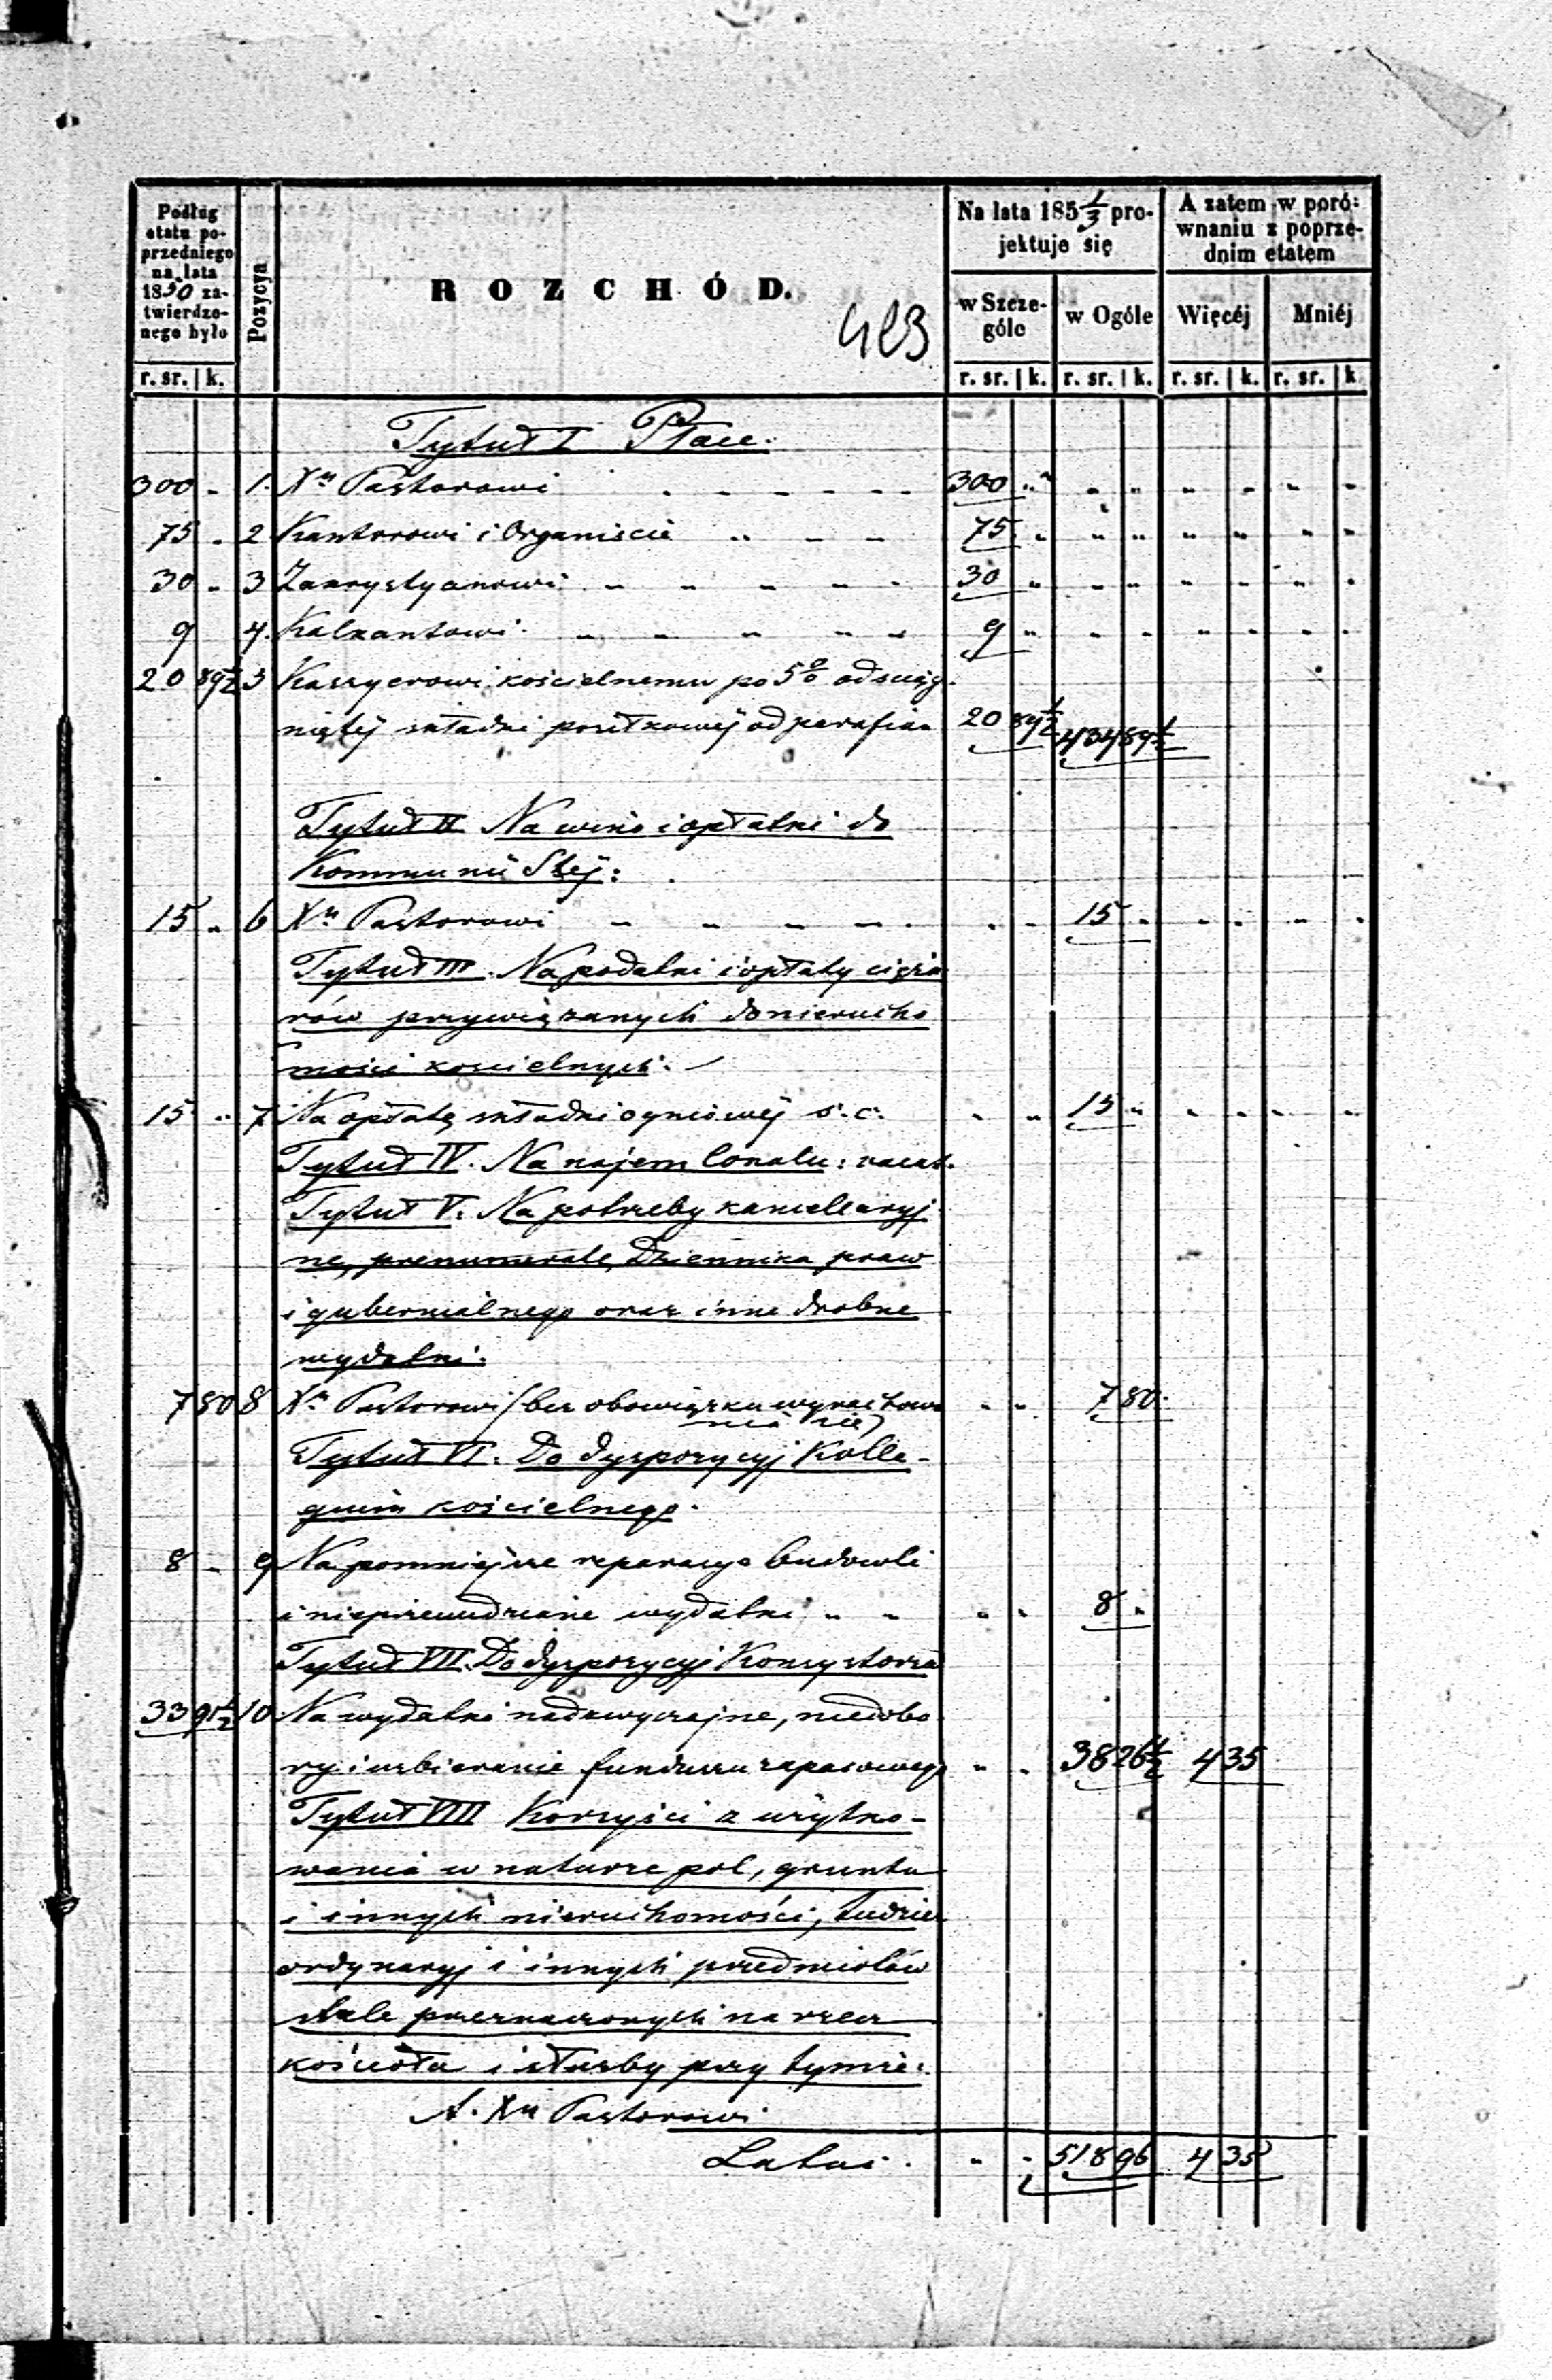 Podług etatu poprzedniego na lata 1850 zatwierdzonego było
Pozycya
R O Z C H Ó D.
Na lata 185 1/3 projektuje się
A zatem w porównaniu z poprzednim etatem
w Szczególe
w Ogóle
Więcéj
Mniéj
r. sr. | k.
r. sr. | k. r. sr. | k. r. sr. | k. r. sr. | k.
Tytuł I Płace.
300 - 1. Xu Pastorowi 300
75 - 2 Kantorowi i Organiście 75
30 - 3 Zakrystyanowi 30
9 4. Kalkantowi 9
20 89½ 5 Kassyerowi kościelnemu po 5% od ściąg-
niętéj składki posiłkowéj od parafian 20 89½ 434 89½
Tytuł II Na wino i opłatki do
Kommunii Stéj:
15 - 6 Xu Pastorowi 15
Tytuł III. Na podatki i opłaty cięża
rów przywiązanych do nierucho
mości kościelnych.
15 - 7 Na opłatę składki ogniowéj s. c. 15
Tytuł IV. Na najem lokalu: vacat.
Tytuł V. Na potrzeby kancellaryj
ne, prenumeratę Dziennika praw
i gubernialnego oraz inne drobne
wydatki.
7 80 8 Xu Pastorowi (bez obowiązku wyrachowa 7 80
nia się)
Tytuł VI. Do dyspozycyj Kolle-
gium kościelnego.
8 - 9 Na pomniejsze reparacye budowli
i nieprzewidziane wydatki 8
Tytuł VII. Do dyspozycyj Konsystorza
33 91½ 10 Na wydatki nadzwyczajne, niedobo
ry i uzbieranie funduszu zapasowego 38 26½ 4 35
Tytuł VIII Korzyści z użytko-
wania w naturze pól, gruntu
i innych nieruchomości, tudzież
ordynaryj i innych przedmiotów
stale przeznaczonych na rzecz
kościoła i służby przy tymże:
A. Xu Pastorowi
Latus. 518 96 4 35